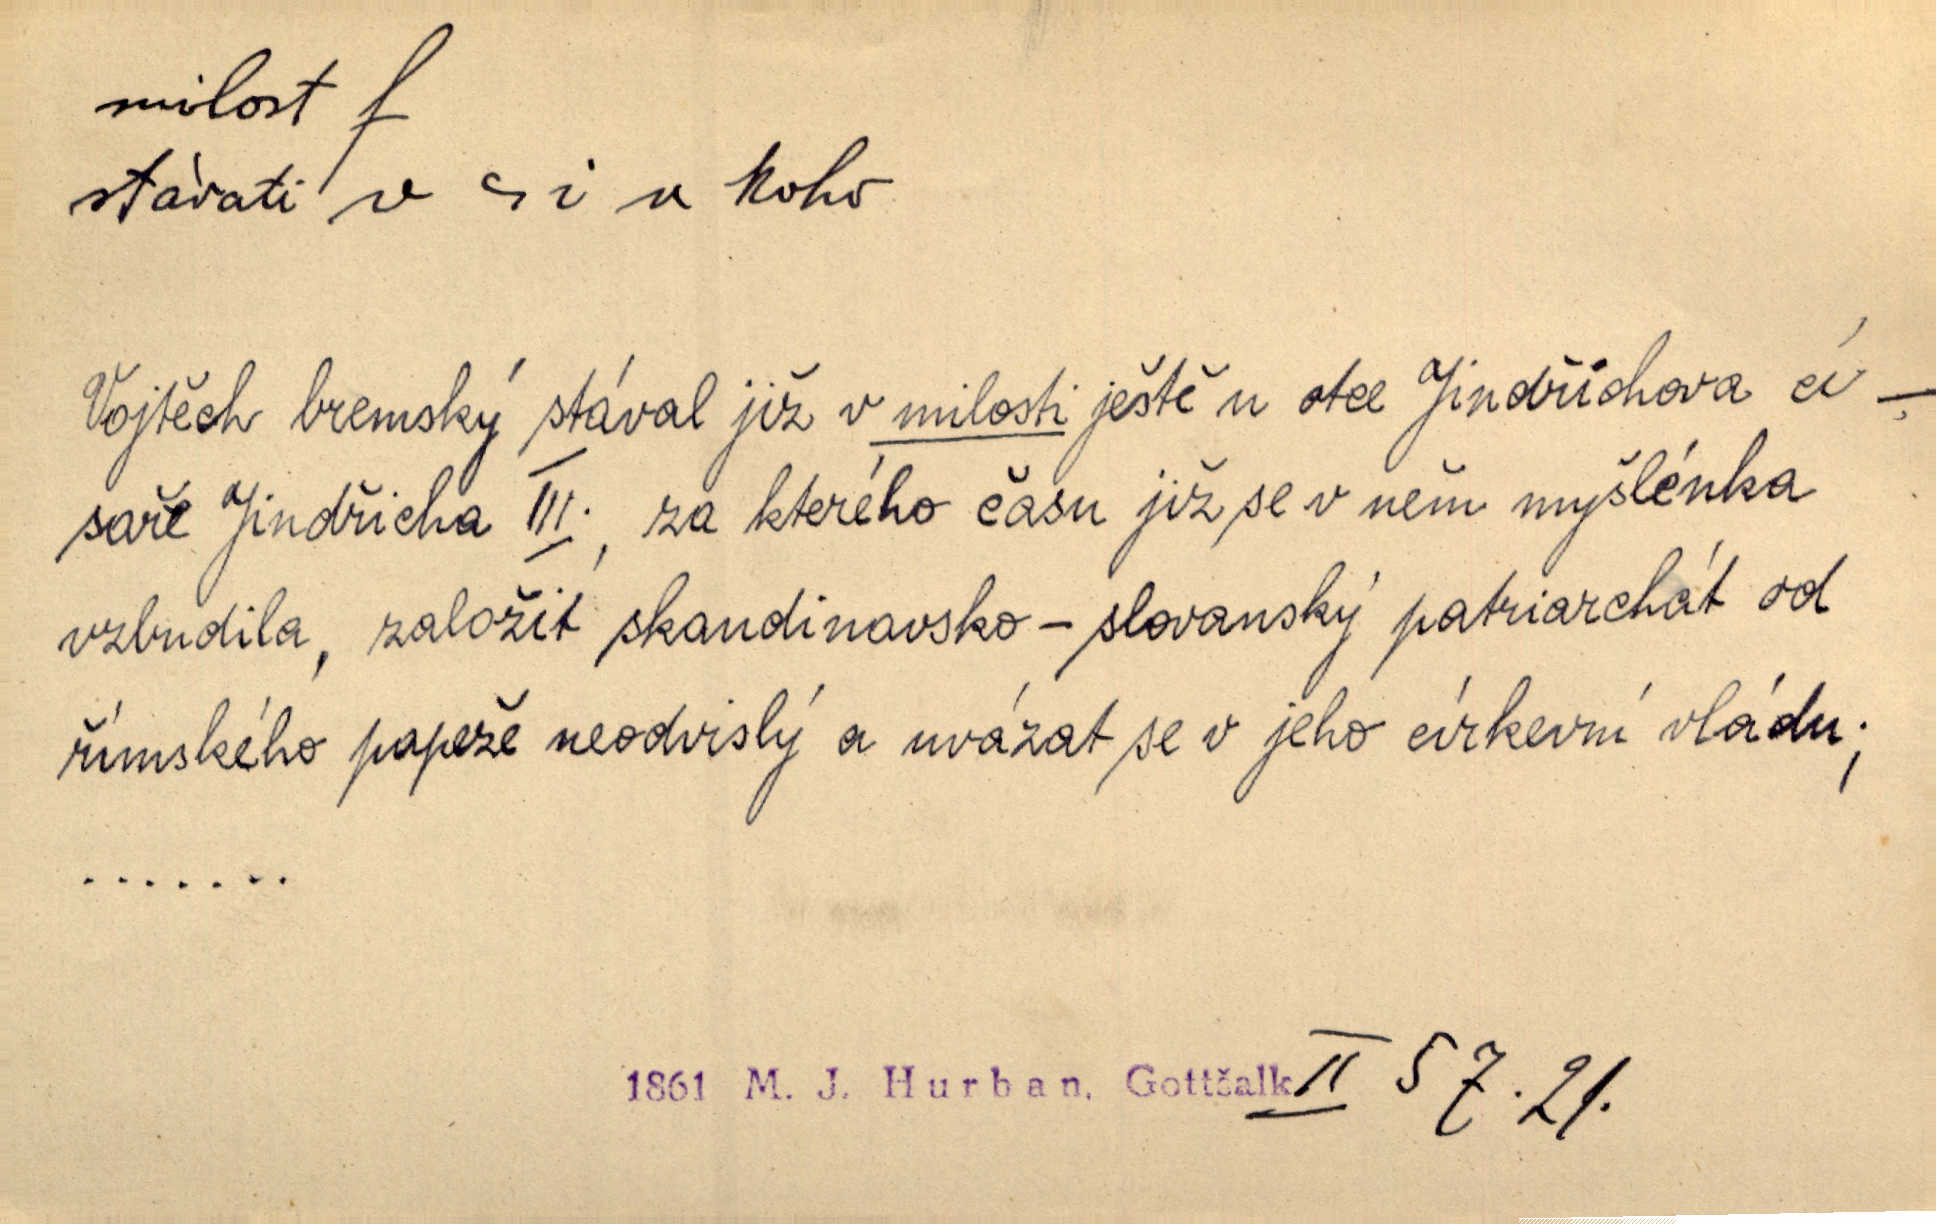 milost f
stávati v ~ i u koho
Vojtěch bremský stával již v milosti ještě u otce Jindřichova cí-
saře Jindřicha III., za kterého času již se v něm myšlénka
vzbudila, založit skandinavsko-slovanský patriarchát od
římského papeže neodvislý a uvázat se v jeho církevní vládu;
.......
1861 M. J. Hurban, Gottšalk II 57.21.